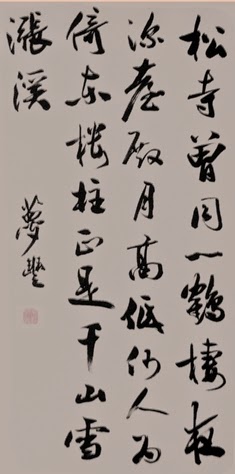 松寺曾同一鶴棲夜
深臺殿月高低何人為
倚東樓柱正是千山雪
漲溪
夢豐